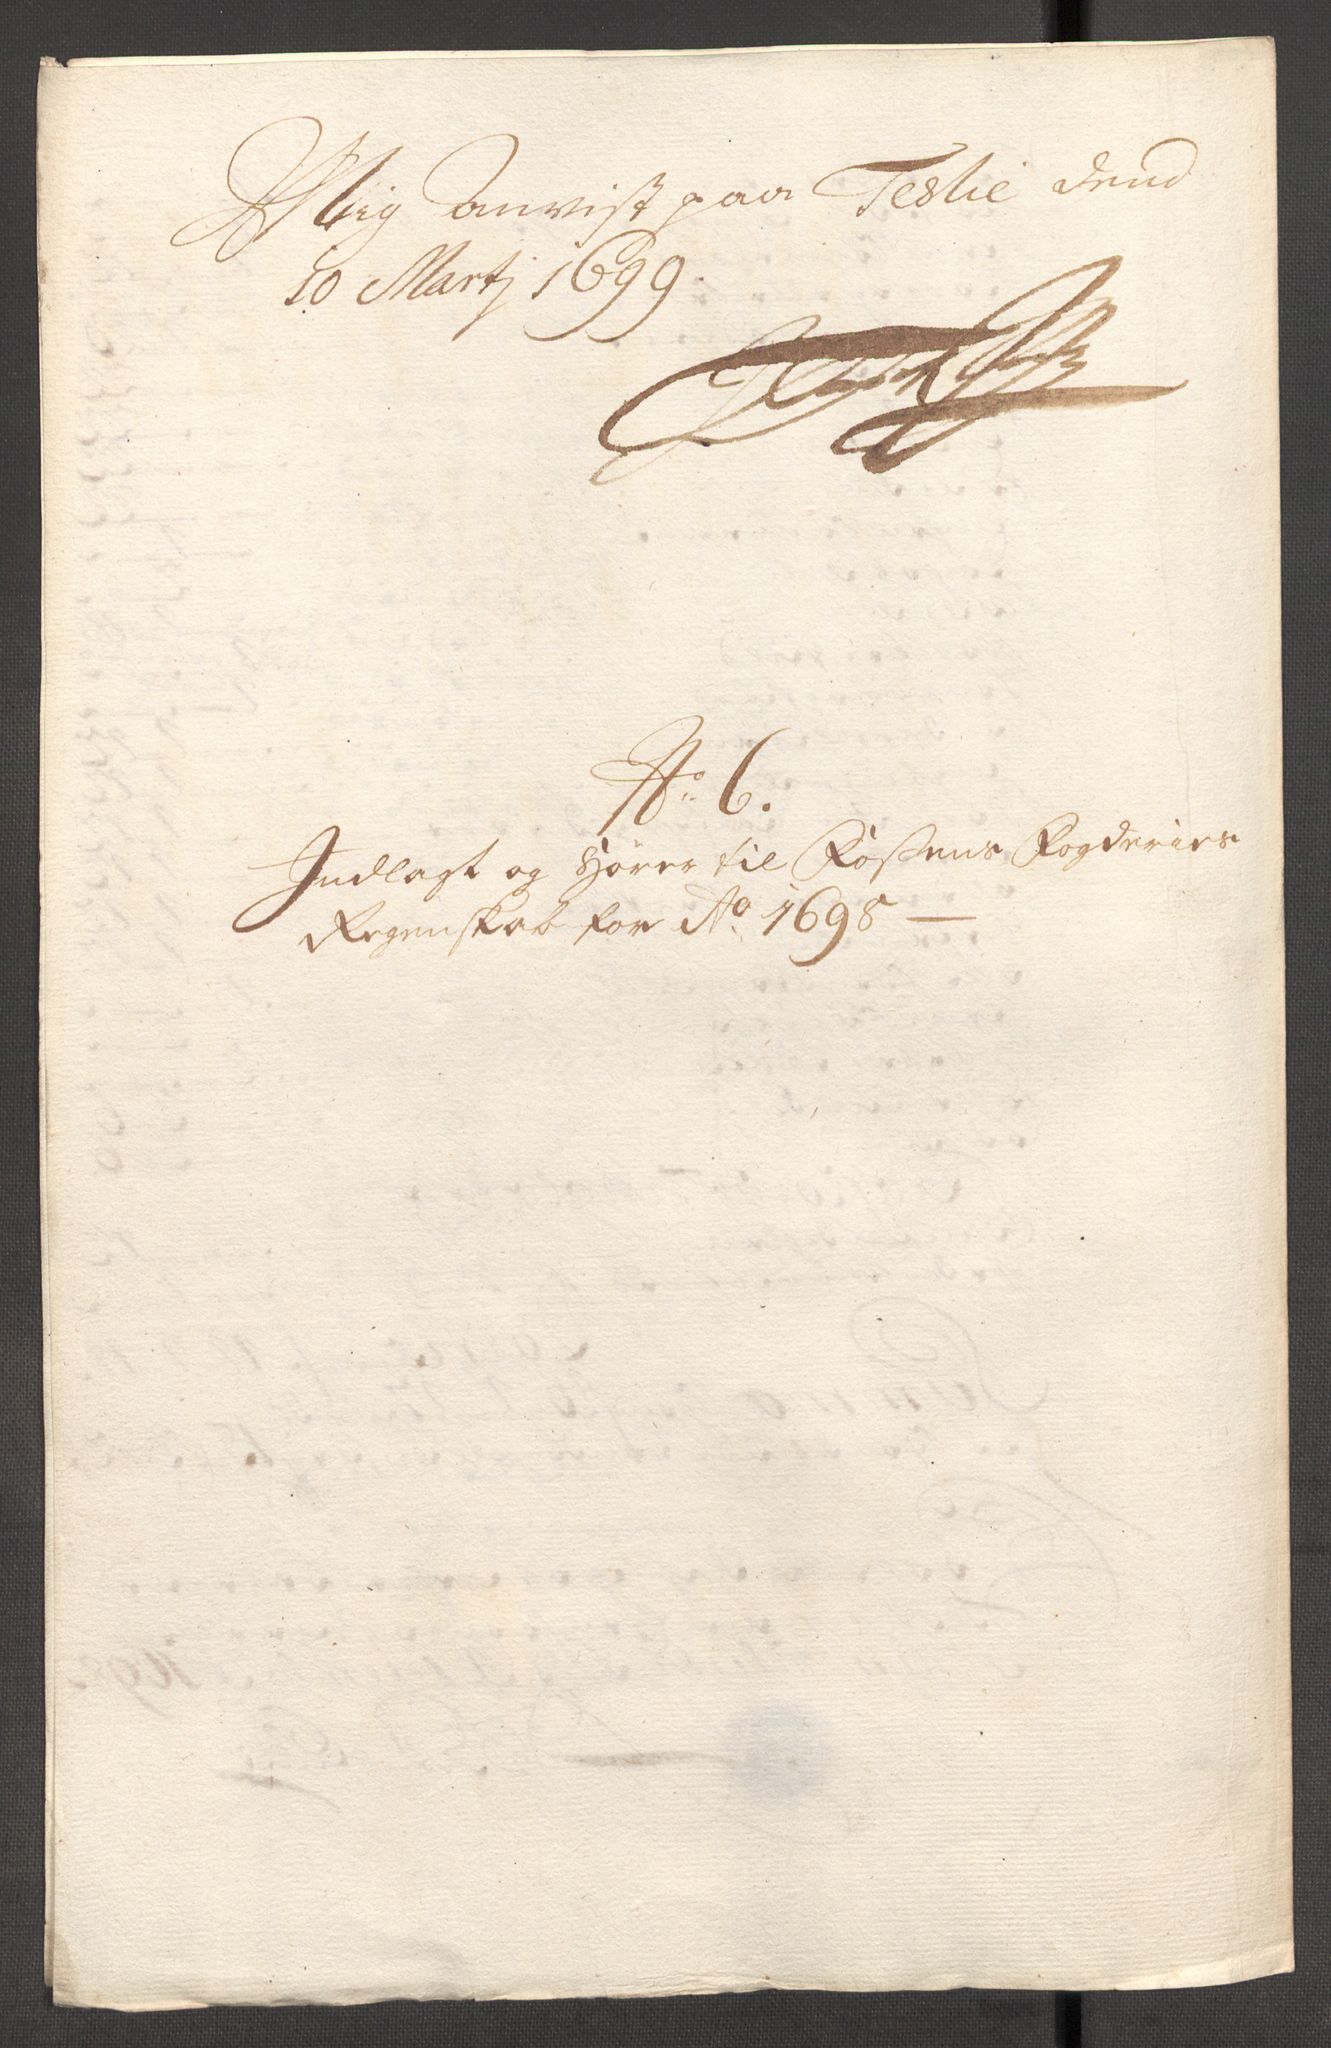 Mig anvist paa Teslie dend
10 Martj 1699.
No. 6.
Indlagt og hörer til Foßens Fogderies
Regenskab for Ao. 1698 —